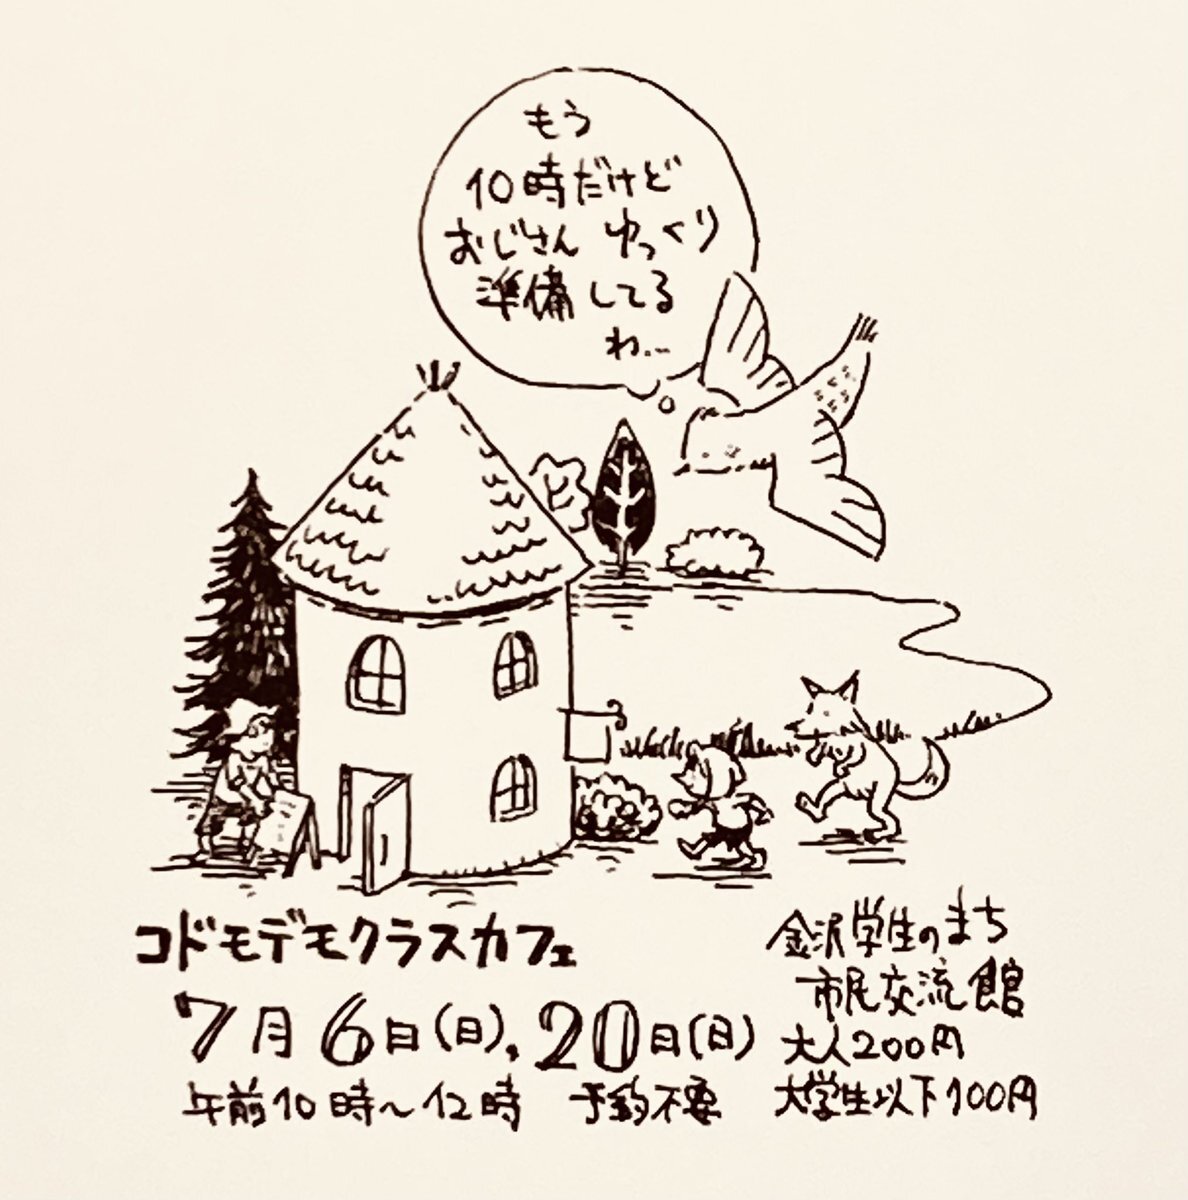 もう
10時だけど
おじさん ゆっくり
準備してる
わ…
コドモデモクラスカフェ
7月6日(日),20日(日)
午前10時〜12時 予約不要
金沢学生のまち
市民交流館
大人200円
大学生以下100円